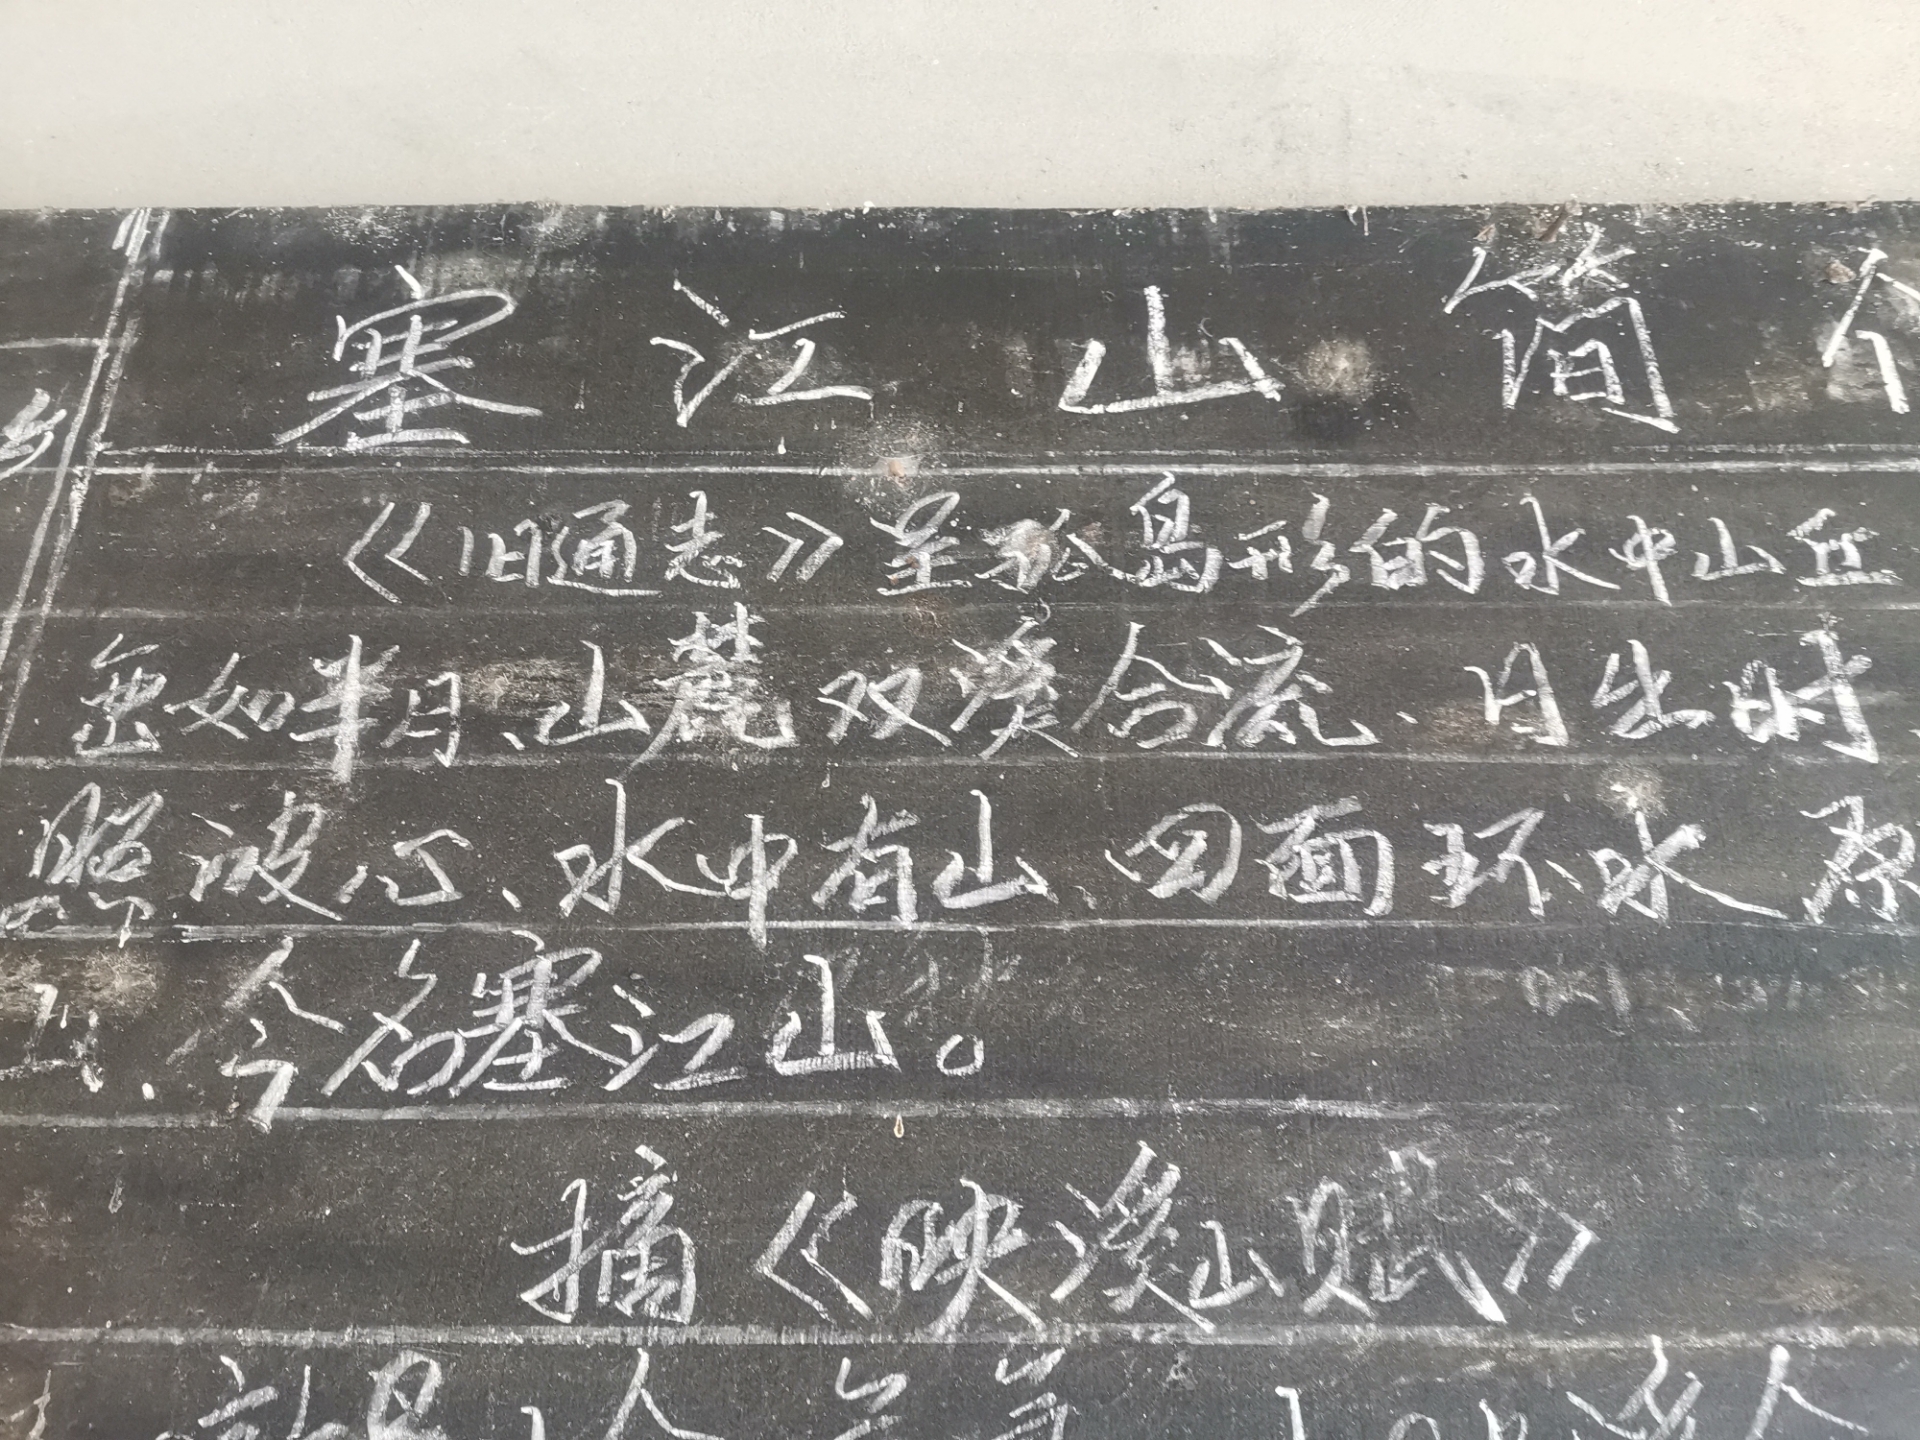 塞江山简介
《旧通志》呈孤岛形的水中山丘
峦如半月、山麓双溪合流、月出时、
照波心、水中有山、四面环水 原
山、今名塞江山。
摘《映溪山赋》
乡